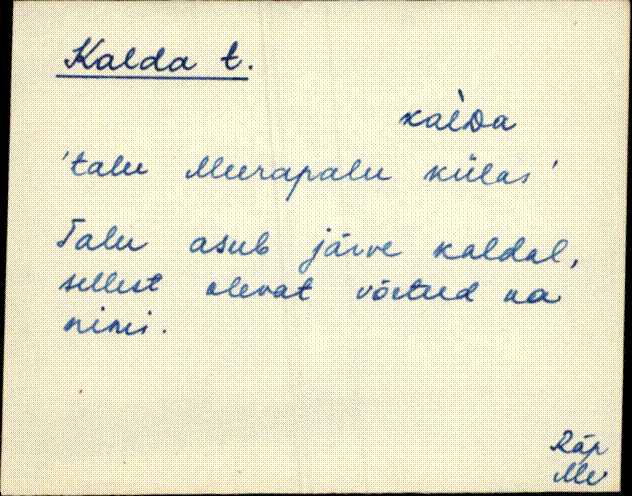 Kalda t.
kal̀Da
'talu Meerapalu külas'
Talu asub järve kaldal,
sellest olevat võetud ka
nimi.
Räp